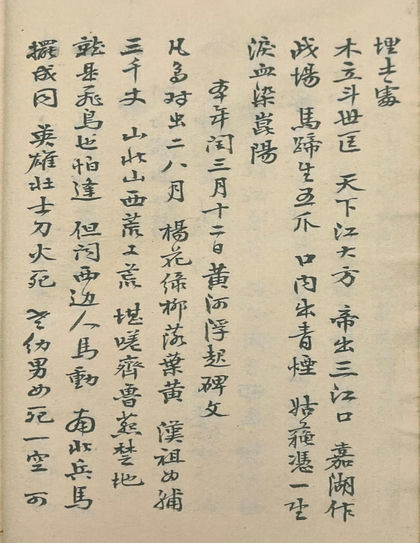 埋士處
木立斗世匡　天下江大方　帝出三江口　嘉湖作
战場　馬蹄生五爪　口内生青煙　姑蘇憑一坐
淚血染崑陽
本年闰三月十二日黄河浮起碑文
凡鳥对出二八月　楊花绿柳落葉黄　漢祖
三千丈　山北山西荒又荒　堪嗟齊魯燕楚地
就是飛鳥也怕逢　但闻西边人馬動　南北兵馬
擺成同　英雄壮士刀火死　老幼男女死一空　可